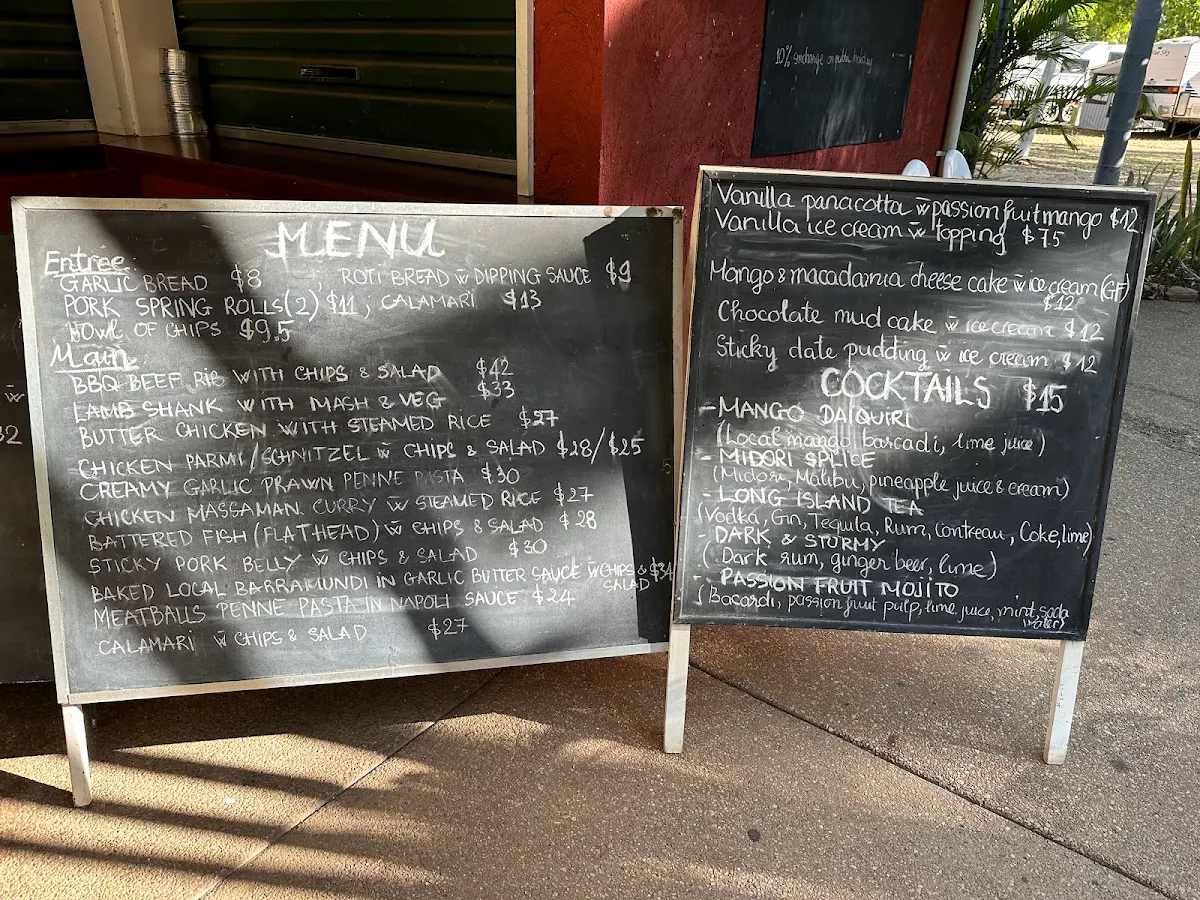 10% surcharge on public holiday
MENU
Entrée
GARLIC BREAD $8 , ROTI BREAD w̄ DIPPING SAUCE $9
PORK SPRING ROLLS(2) $11 , CALAMARI $13
BOWL OF CHIPS $9.5
Main
BBQ BEEF RIB WITH CHIPS & SALAD $42
LAMB SHANK WITH MASH & VEG $33
BUTTER CHICKEN WITH STEAMED RICE $27
CHICKEN PARMI/SCHNITZEL w̄ CHIPS & SALAD $28/$25
CREAMY GARLIC PRAWN PENNE PASTA $30
CHICKEN MASSAMAN CURRY w̄ STEAMED RICE $27
BATTERED FISH (FLATHEAD) w̄ CHIPS & SALAD $28
STICKY PORK BELLY w̄ CHIPS & SALAD $30
BAKED LOCAL BARRAMUNDI IN GARLIC BUTTER SAUCE w̄ CHIPS & $34
SALAD
MEATBALLS PENNE PASTA IN NAPOLI SAUCE $24
CALAMARI w̄ CHIPS & SALAD $27
Vanilla panacotta w̄ passion fruit mango $12
Vanilla ice cream w̄ topping $7.5
Mango & macadamia cheese cake w̄ ice cream (GF)
$12
Chocolate mud cake w̄ ice cream $12
Sticky date pudding w̄ ice cream $12
COCKTAILS $15
- MANGO DAIQUIRI
(Local mango, barcadi, lime juice)
- MIDORI SPLICE
(Midori, Malibu, pineapple juice & cream)
- LONG ISLAND TEA
(Vodka, Gin, Tequila, Rum, Contreau, Coke, lime)
- DARK & STORMY
(Dark rum, ginger beer, lime)
- PASSION FRUIT MOJITO
(Bacardi, passion fruit pulp, lime juice, mint, soda
water)
w̄
32